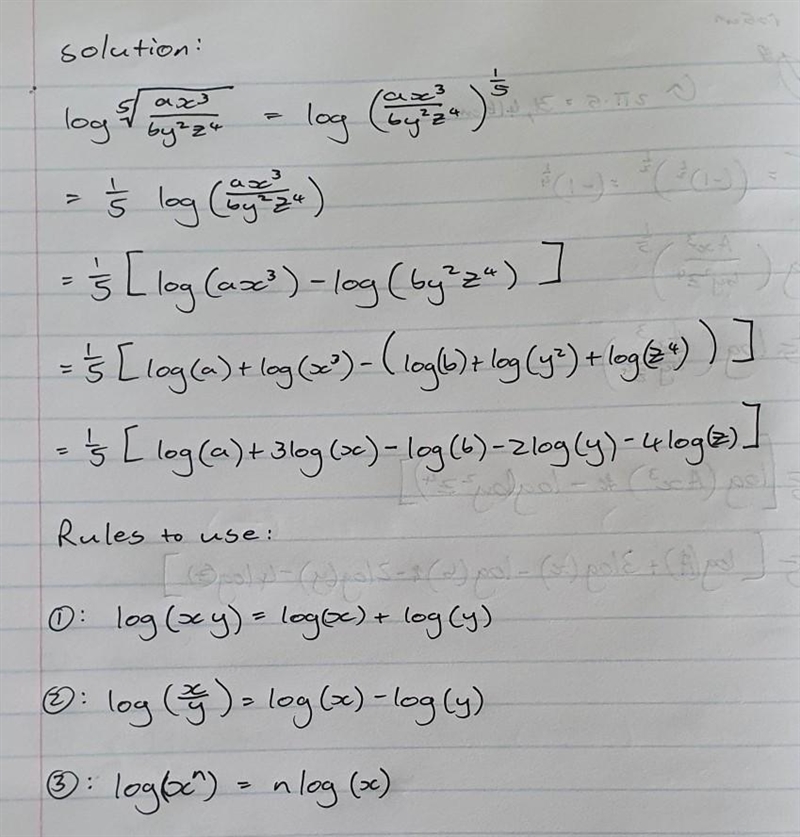 solution:
log ⁵√(ax³/by²z⁴) = log (ax³/by²z⁴)^(1/5)
= 1/5 log (ax³/by²z⁴)
= 1/5 [log(ax³) - log(by²z⁴)]
= 1/5 [log(a) + log(x³) - (log(b) + log(y²) + log(z⁴))]
= 1/5 [log(a) + 3log(x) - log(b) - 2log(y) - 4log(z)]
Rules to use:
①: log(xy) = log(x) + log(y)
②: log(x/y) = log(x) - log(y)
③: log(xⁿ) = n log(x)